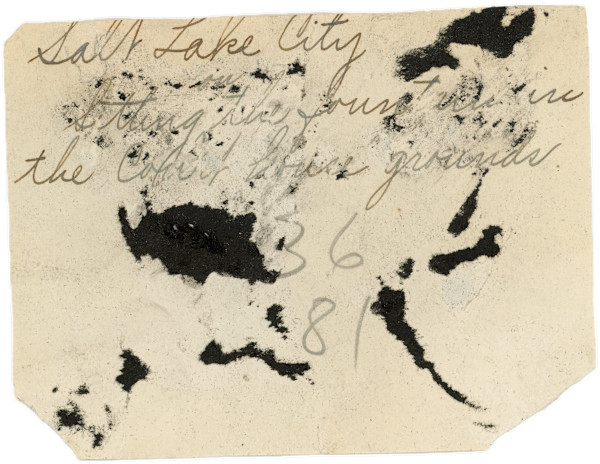 Salt Lake City
on
Sitting the fountain in
the Court house grounds
36
81